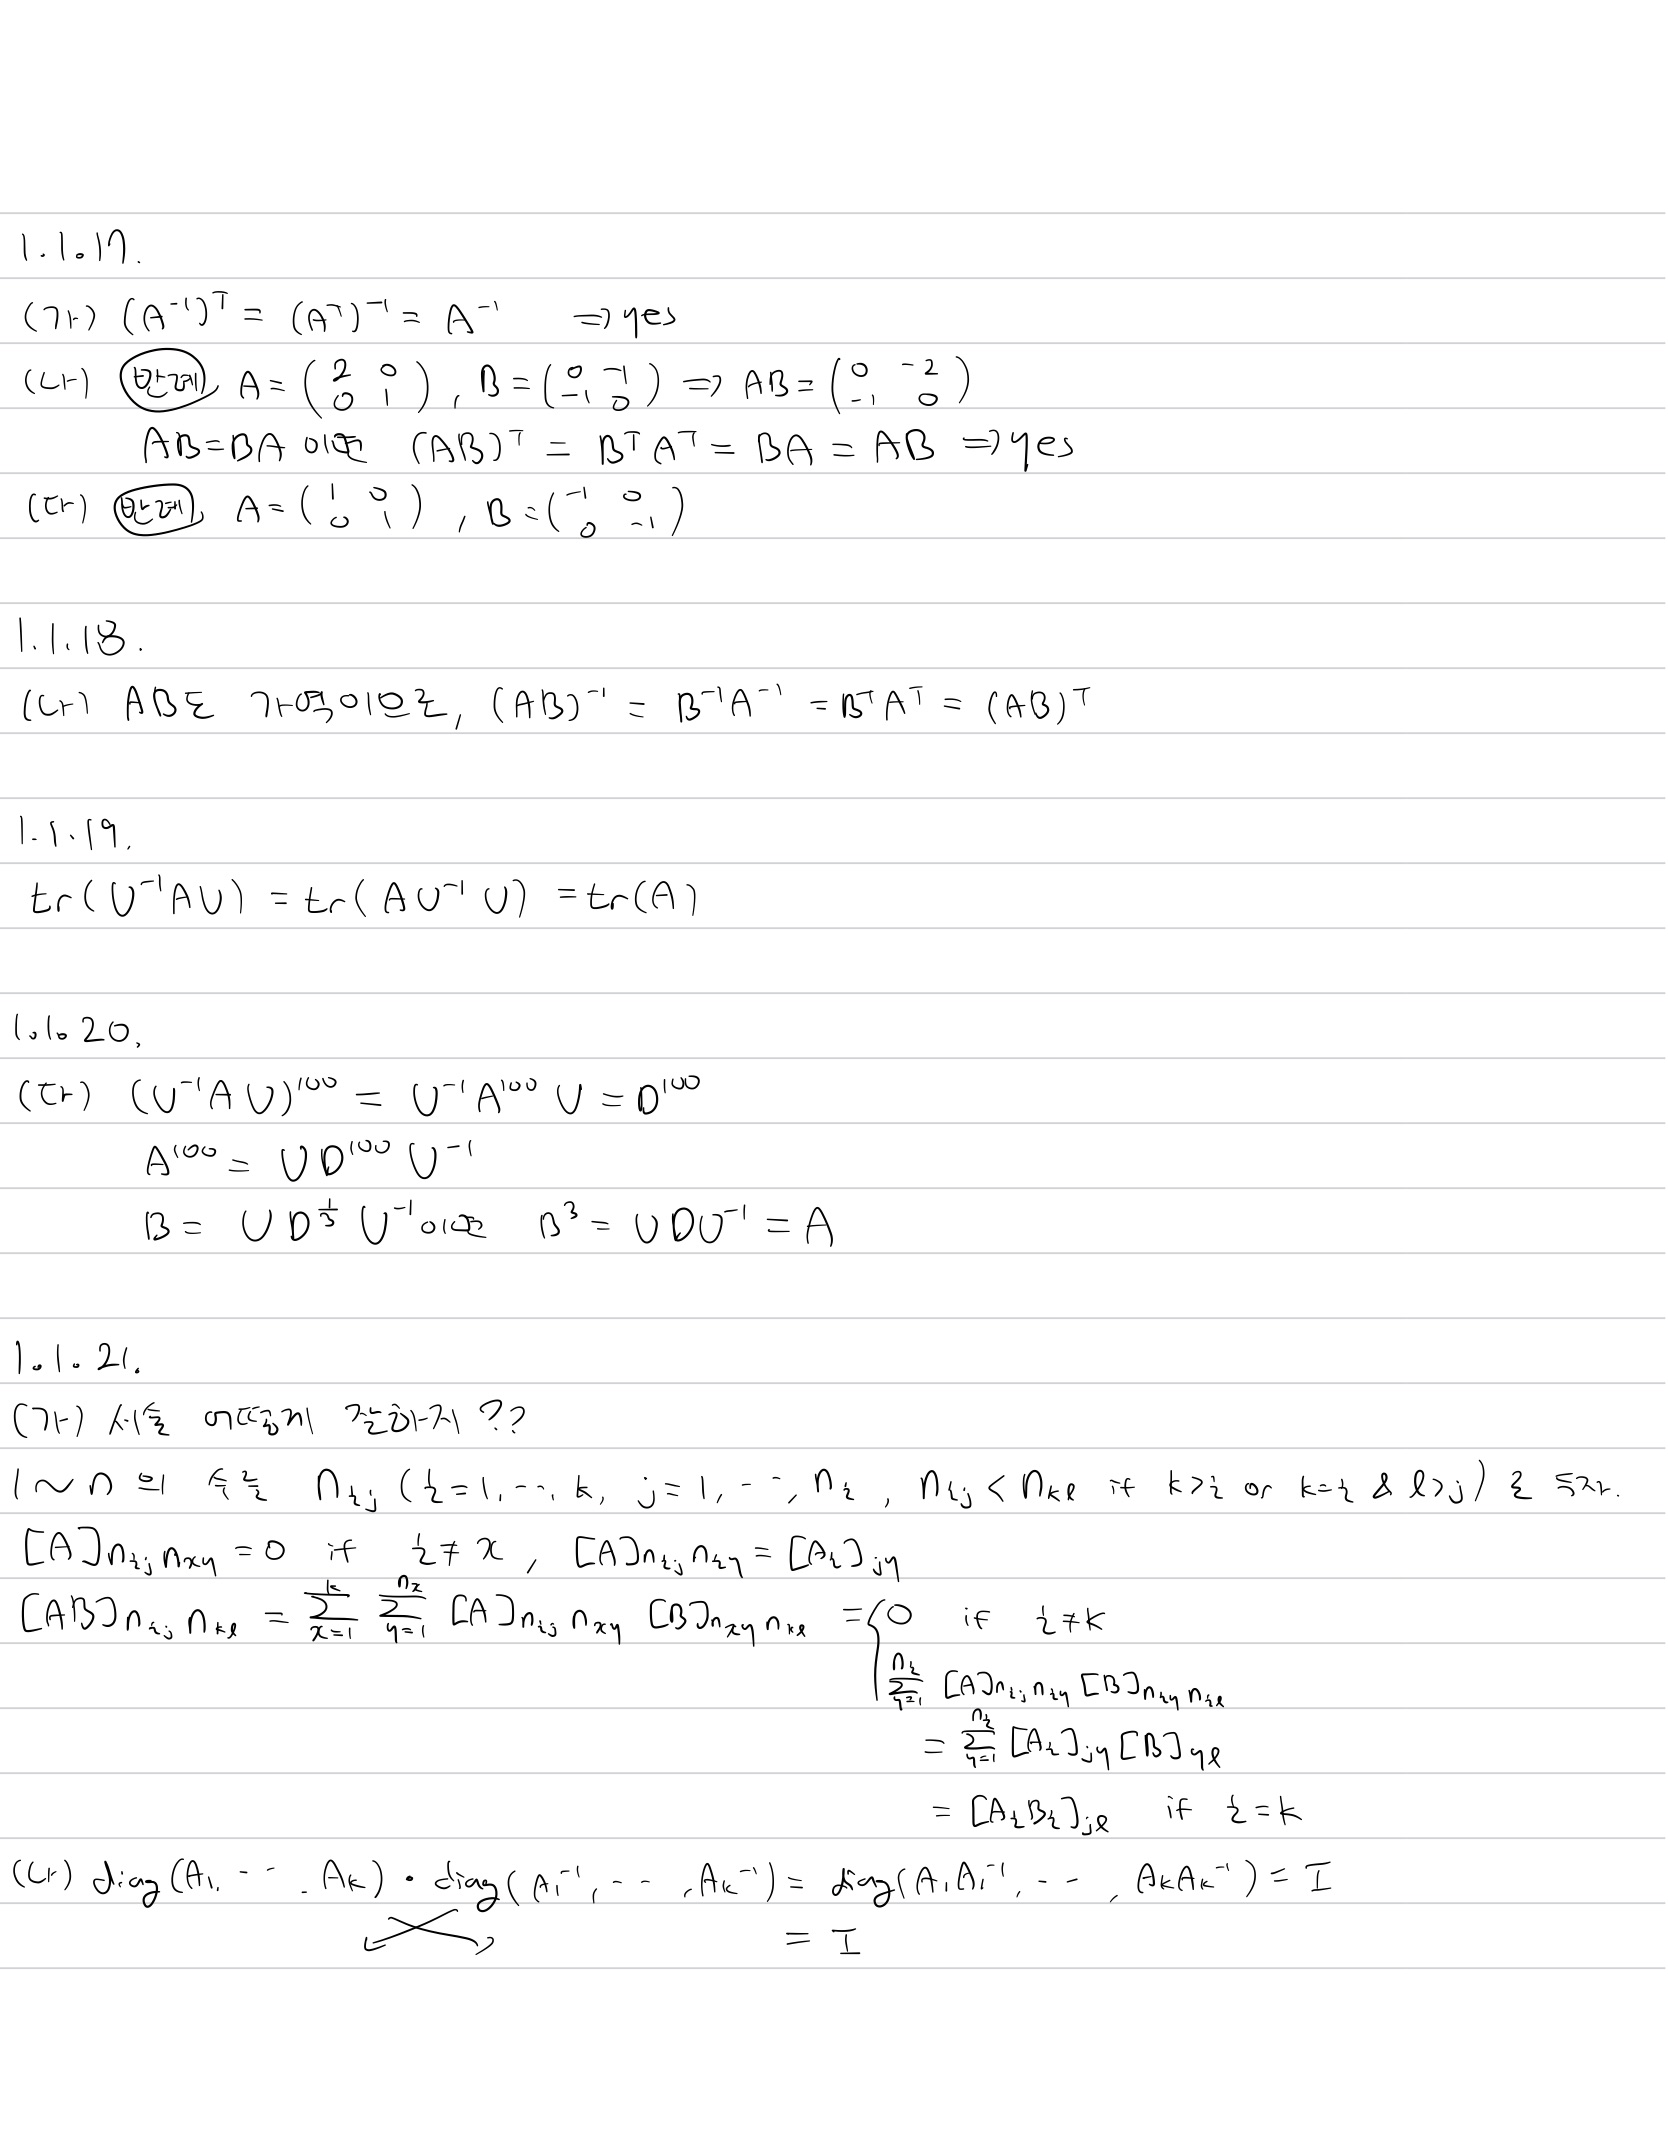 1.1.17.
(가) (A⁻¹)ᵀ = (Aᵀ)⁻¹ = A⁻¹ ⇒ yes
(나) 반례 A = (2 0 / 0 1), B = (0 -1 / -1 0) ⇒ AB = (0 -2 / -1 0)
AB=BA 이면 (AB)ᵀ = BᵀAᵀ = BA = AB ⇒ yes
(다) 반례 A = (1 0 / 0 1), B = (-1 0 / 0 -1)
1.1.18.
(나) AB도 가역이므로, (AB)⁻¹ = B⁻¹A⁻¹ = BᵀAᵀ = (AB)ᵀ
1.1.19.
tr(U⁻¹AU) = tr(AU⁻¹U) = tr(A)
1.1.20.
(다) (U⁻¹AU)¹⁰⁰ = U⁻¹A¹⁰⁰U = D¹⁰⁰
A¹⁰⁰ = UD¹⁰⁰U⁻¹
B = UD^{1/3}U⁻¹이면 B³ = UDU⁻¹ = A
1.1.21.
(가) 서술 어떻게 잘하지??
1~n의 수를 n_{ij} (i=1, ..., k, j=1, ..., n_i, n_{ij} < n_{kl} if k>i or k=i & l>j)로 두자.
[A]_{n_{ij} n_{xy}} = 0 if i≠x, [A]_{n_{ij} n_{iy}} = [A_i]_{jy}
[AB]_{n_{ij} n_{kl}} = Σ_{x=1}^{k} Σ_{y=1}^{n_x} [A]_{n_{ij} n_{xy}} [B]_{n_{xy} n_{kl}} = { 0 if i≠k
Σ_{y=1}^{n_i} [A]_{n_{ij} n_{iy}} [B]_{n_{iy} n_{il}}
= Σ_{y=1}^{n_i} [A_i]_{jy} [B]_{yl}
= [A_iB_i]_{jl} if i=k
(나) diag(A₁, ..., A_k) · diag(A₁⁻¹, ..., A_k⁻¹) = diag(A₁A₁⁻¹, ..., A_kA_k⁻¹) = I
= I